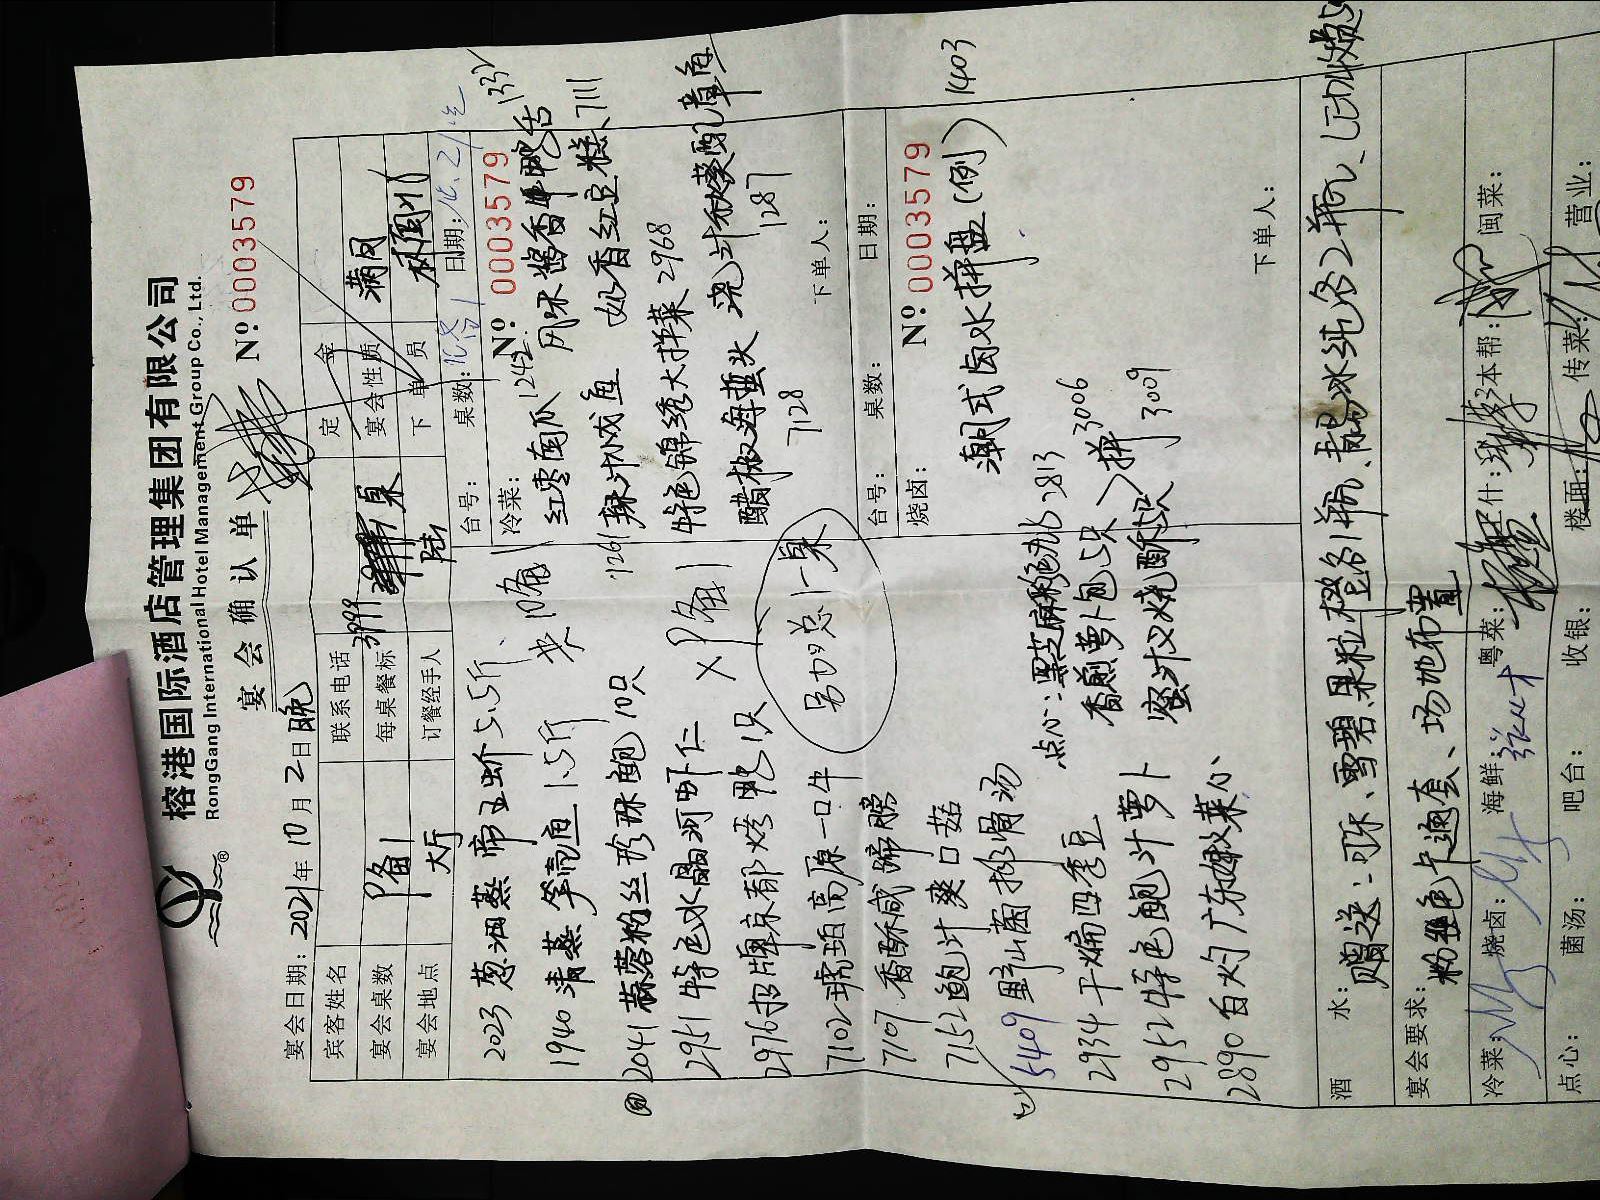 榕港国际酒店管理集团有限公司
RongGang International Hotel Management Group Co., Ltd.
宴会确认单
Nº 0003579
宴会日期: 2021年10月2日晚
宾客姓名 联系电话 定金
宴会桌数 每桌餐标 3999 桌 宴会性质 满月
宴会地点 大厅 订餐经手人 陆 下单员
2023 葱油蒸帝王蚧5.5斤
1940 清蒸笋壳鱼1.5斤
2041 蒜蓉粉丝珍珠鲍10只
2951 特色水晶河虾仁
2976 招牌京都烤鸭1只
7102 琥珀高原一口牛
7107 香酥咸蹄膀
7152 鲍汁爽口菇
5409 野山菌排骨汤
2934 干煸四季豆
2952 特色鲍汁萝卜
2890 白灼广东
台号: 桌数: 日期:
冷菜: Nº 0003579
红枣南瓜 1242 风味酱香鸭舌 1332
辣汁城鱼 1261 奶香红豆糕 7111
特色锦绣大拌菜 2968
醋椒海蜇头 7128 捞汁秋葵配章鱼 1287
下单人:
台号: 桌数: 日期:
烧卤: Nº 0003579
潮式卤水拼盘(例) 1403
点心: 黑芝麻 2813
香煎萝卜包 5只 拼 3006
蜜汁叉烧酥 5只 3009
下单人:
酒水: 赠送: 可乐、雪碧、果粒橙各1瓶、冰纯各2瓶、
宴会要求: 粉丝色卡通套、场地布置
冷菜: 烧卤: 海鲜: 粤菜: 什: 本帮: 闽菜:
点心: 菌汤: 吧台: 收银: 楼面: 传菜: 营业: